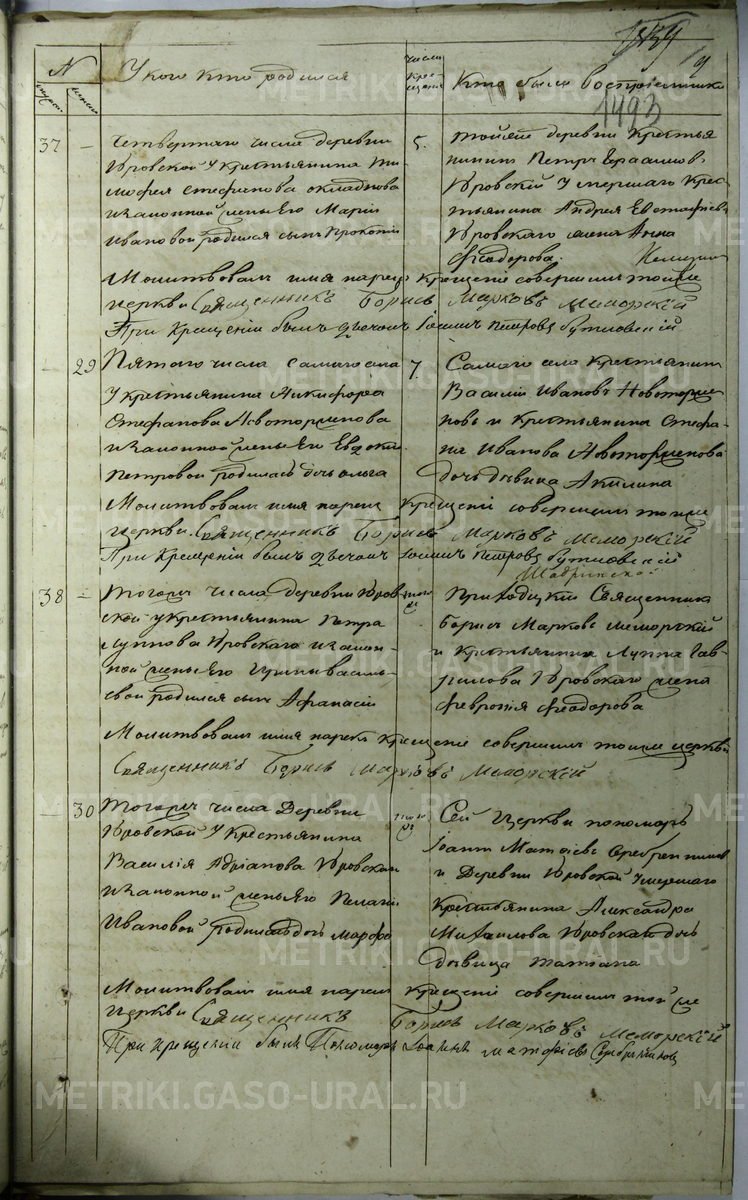 N
У кого кто родился
числа крещения
Кто были восприемники
1493
37
Четвертаго числа деревни
Юровской у крестьянина Ти-
мофея Стефанова
и законной жены его Марии
Ивановой родился сынъ Прокопий
5.
тойже деревни крестья
нинъ Петръ Герасимов
Юровский умершаго крес-
тьянина Андрея
Юровскаго жена Анна
Феодорова.
Молитвовалъ имя нарекъ крещение совершилъ тойже
церкви Священникъ Борисъ Марковъ Меморский
При крещении былъ дьячокъ Иоаннъ Петровъ
29
Пятаго числа самаго села
у крестьянина Никифора
Стефанова
и законной жены его Евдокии
Петровой родилась дочь Ольга
7.
Самаго села крестьянин
Василий Ивановъ
и крестьянина Стефа-
на Иванова
дочь девица Акилина
Молитвовалъ имя нарекъ крещение совершилъ тойже
церкви Священникъ Борисъ Марковъ Меморский
При крещении былъ дьячокъ Иоаннъ Петровъ
38
Тогожъ числа деревни Юров
ской у крестьянина Петра
Луппова Юровскаго и закон-
ной жены его Ирины Василь-
евой родился сынъ Афанасий
того
же
Приходский Священникъ
Борисъ Марковъ Меморский
и крестьянина Луппа Гав-
рилова Юровскаго жена
Феврония Феодорова
Молитвовалъ имя нарекъ крещение совершилъ тойже церкви
Священникъ Борисъ Марковъ Меморский
30
Тогожъ числа Деревни
Юровской у Крестьянина
Василия Адрианова Юровскаго
и законной жены его Пелагии
Ивановой родилась дочь Марфа
того
же
Сей Церкви пономарь
Иоаннъ Матфиевъ Серебренников
и Деревни Юровской умершаго
Крестьянина Александра
Михайлова Юровскаго дочь
девица Татиана
Молитвовалъ имя нарекъ крещение совершилъ тойже
церкви Священникъ Борисъ Марковъ Меморский
При крещении былъ Пономарь Иоаннъ Матфиевъ Серебренников
METRIKI.GASO-URAL.RU